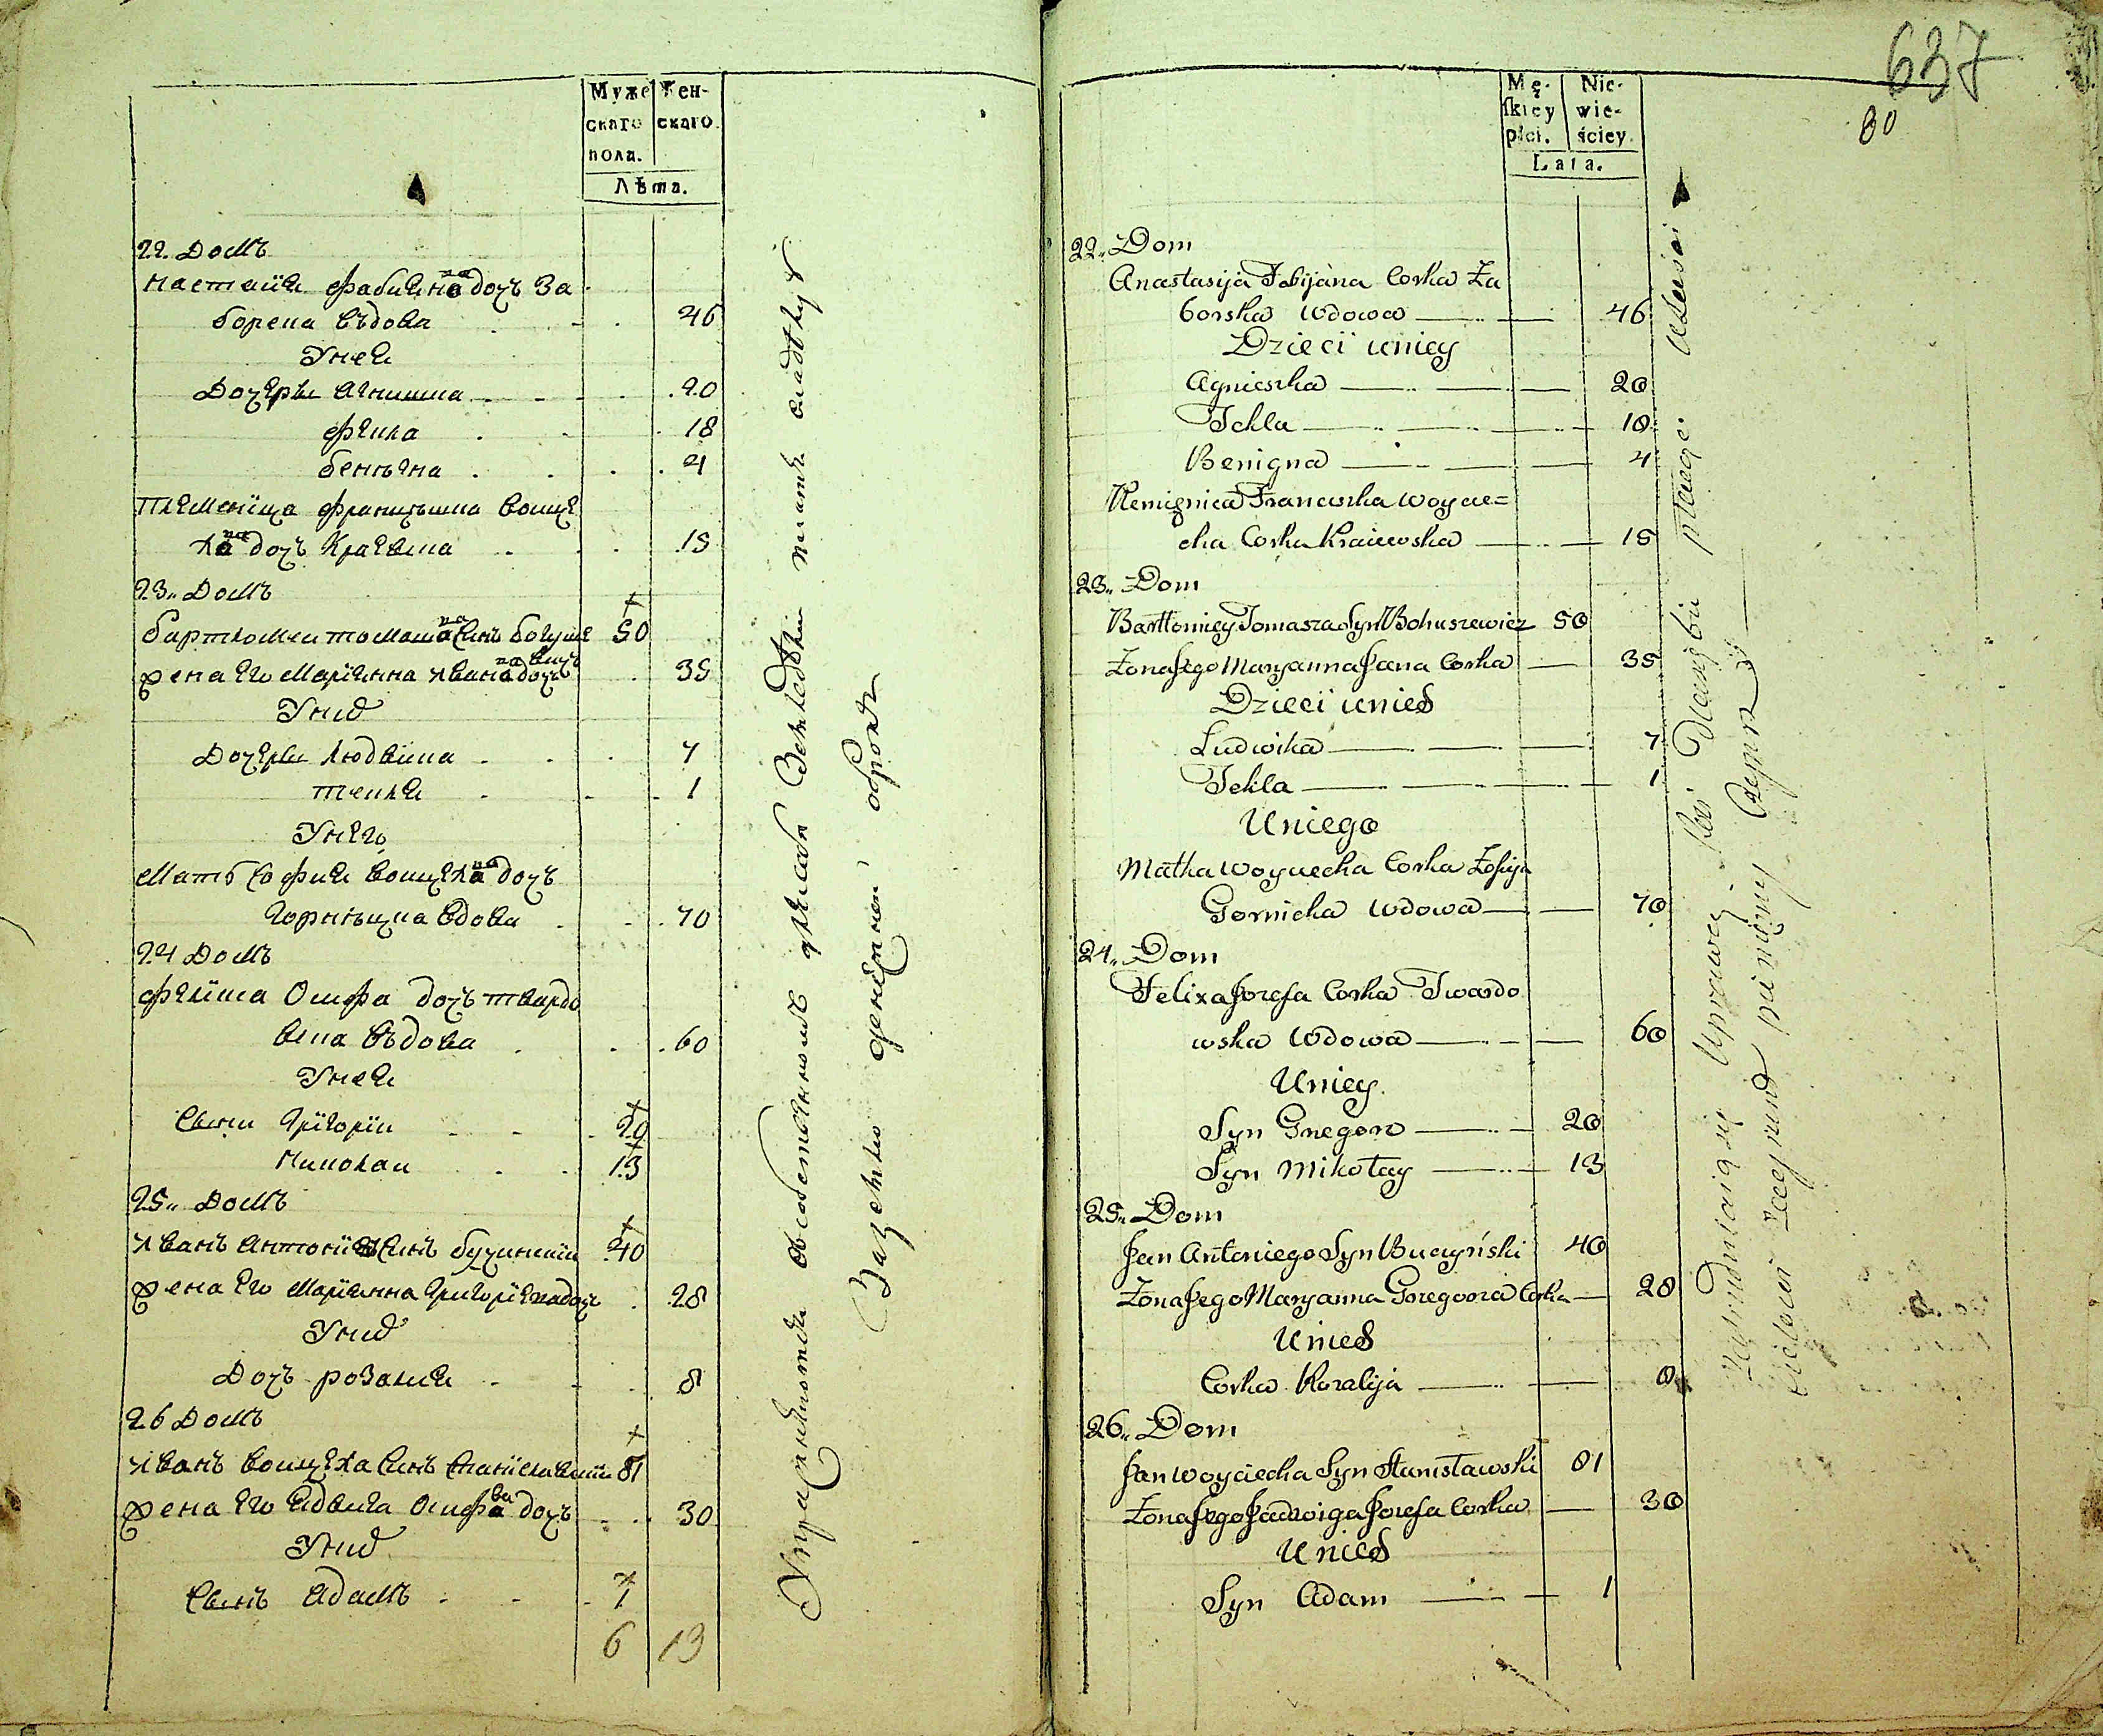 Муже
скаго
пола.
Жен-
скаго
Лѣта.
22. Домъ
Настазїя Фабияна дочъ За
борска въдова 46
Унея
Дочеры Агнишка 20
Фекла 18
Бенигна 4
племенїца Францышка Воице
ха дочъ Краевска 15
23„ Домъ
Бартломеи Томаша Синъ Богуше
вичъ 50
жена его Марїянна Ивана дочъ 35
Уних
Дочеры Людвика 7
Текля 1
Унего
Мать София Воицеха дочъ
Горницка вдова 70
24 Домъ
Фелїкса Осифа дочъ Твардо
вска въдова 60
Унея
Сыны Грїгорїи 20
Николаи 13
25„ Домъ
Иванъ Антонїя Синъ Бучинскїи 40
жена его Марїянна Григорїева дочъ 28
Уних
Дочъ Розалия 8
26 Домъ
Иванъ Воицеха Синъ Станїславскїи 81
жена его Ядвига Осифа дочъ 30
Уних
Сынъ Адамъ 1
6 13
637
80
Mę-
skiey
płci.
Nie-
wie-
ściey.
Lata.
22„ Dom
Anastasija Fabijana Corka Za
borska Wdowa 46
Dzieci uniey
Agnieszka 20
Tekla 18
Benigna 4
Plemięnica Franciszka Woycie=
cha Corka Kraiewska 15
23„ Dom
Bartłomiey Tomasza Syn Bohuszewicz 50
Zona Jego Maryanna Jana Corka 35
Dzieci unich
Ludwika 7
Tekla 1
Uniego
Matka Woyciecha Corka Zofija
Gornicka Wdowa 70
24„ Dom
Felixa Jozefa Corka Twardo
wska Wdowa 60
Uniey
Syn Gregorz 20
Syn Mikołay 13
25„ Dom
Jan Antoniego Syn Buczyński 40
Zona Jego Maryanna Gregorza Corka 28
Unich
Corka Rozalija 8
26„ Dom
Jan Woyciecha Syn Stanisławski 81
Zona Jego Jadwiga Jozefa Corka 30
Unich
Syn Adam 1